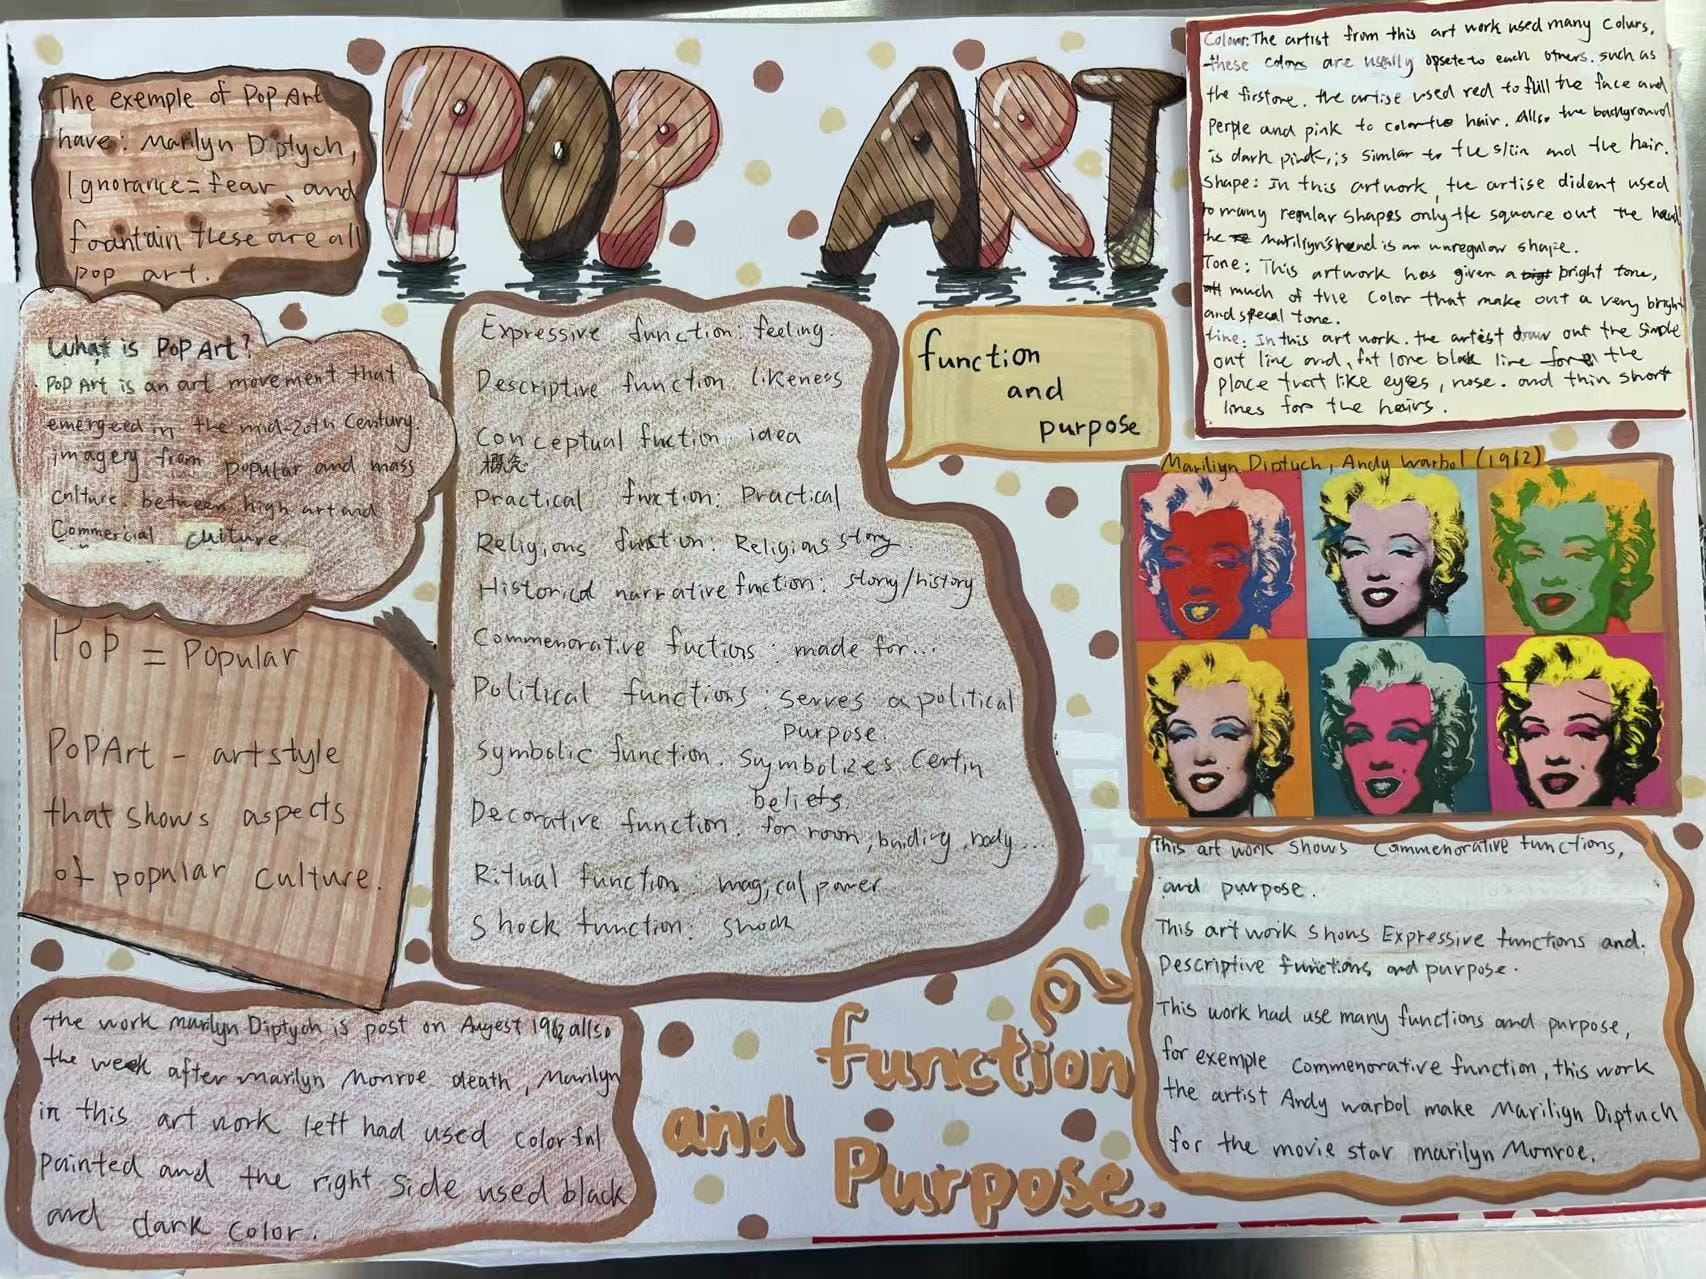 POP ART
The exemple of Pop Art
have: Marilyn Diptych,
Ignorance = fear, and
fountain these are all
pop art.
What is PoP Art?
POP Art is an art movement that
emergeed in the mid-20th Century.
imagery from popular and mass
culture. between high art and
Commercial culture.
POP = Popular
POPArt - artstyle
that shows aspects
of popular culture.
the work marilyn Diptych is post on Augest 1962 allso
the week after marilyn Monroe death, Marilyn
in this art work left had used colorful
painted and the right side used black
and dark color.
Expressive function: feeling.
Descriptive function: likeness
Conceptual fuction: idea
概念
Practical function: Practical
Religions function: Religions story
Historical narrative function: story/history
Commenorative fuctions: made for...
Political functions: serves a political
purpose.
Symbolic function. Symbolizes Certin
beliefs.
Decorative function. for room, building, body...
Ritual function: magical power
Shock function: shock
function
and
purpose
Colour: The artist from this art work used many colurs,
these colors are usually opsete to each others. such as
the firstone. the artise used red to full the face and
perple and pink to color the hair. Allso the background
is dark pink, is similar to the skin and the hair.
Shape: In this artwork, the artise dident used
to many regular shapes only the square out the head
the marilyn's head is an unregular shape.
Tone: This artwork has given a bright tone,
much of the color that make out a very bright
and specal tone.
line: In this art work. the artest draw out the simple
out line and, black line the
place that like eyes, nose. and thin short
lines for the heirs.
Marilyn Diptuch, Andy Warbol (1962)
This art work shows Commenorative functions,
and purpose.
This art work shows Expressive functions and.
Descriptive functions and purpose.
This work had use many functions and purpose,
for exemple Commenorative function, this work
the artist Andy warbol make Mariliyn Diptuch
for the movie star marilyn Monroe.
function
and
Purpose.